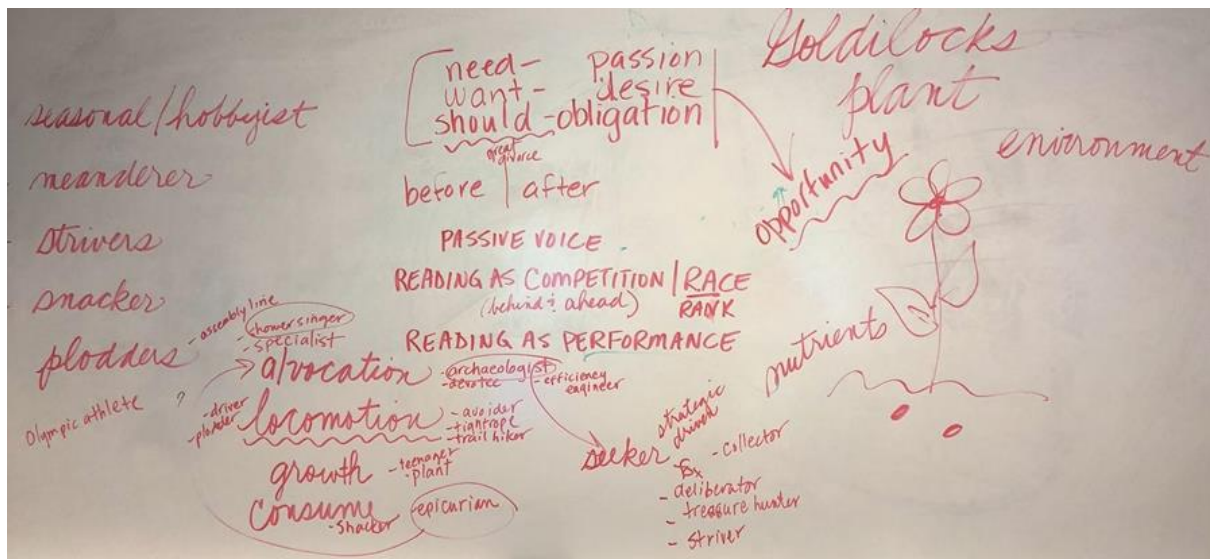 seasonal/hobbyist
meanderer
strivers
snacker
plodders
- assembly line
showersinger
- specialist
Olympic athlete
?
need - passion
want - desire
should - obligation
great divorce
before | after
PASSIVE VOICE
READING AS COMPETITION / RACE
(behind & ahead) RANK
READING AS PERFORMANCE
a/vocation
- archaeologist
- efficiency engineer
- driver
- plodder
locomotion
- avoider
- tightrope
- trail hiker
growth
- teenager
- plant
consume
- snacker
- epicurian
seeker
strategic
driven
- collector
- deliberator
- treasure hunter
- striver
Goldilocks
plant
environment
opportunity
nutrients